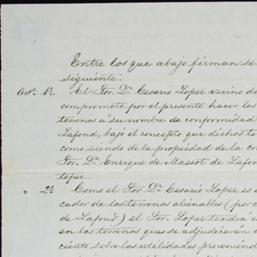 Entre los que abajo firman se
siguiente.
Art. 1º. El Sor. Dn. Cesario Lopez vecino de
compromete por el presente hacer los
terrenos á su nombre de conformidad
Lafond, bajo el concepto que dichos t
como siendo de la propiedad de la co
Sor. Dn. Enrique de Massot de Lafon
tepec.
" 2º. Como el Sor. Dn. Cesario Lopez es
cador de los terrenos alienables (por c
de Lafond) el Sor. Lopez tendrá
en los terrenos que se adjudicarán
ciente sobre las utilidades provenien